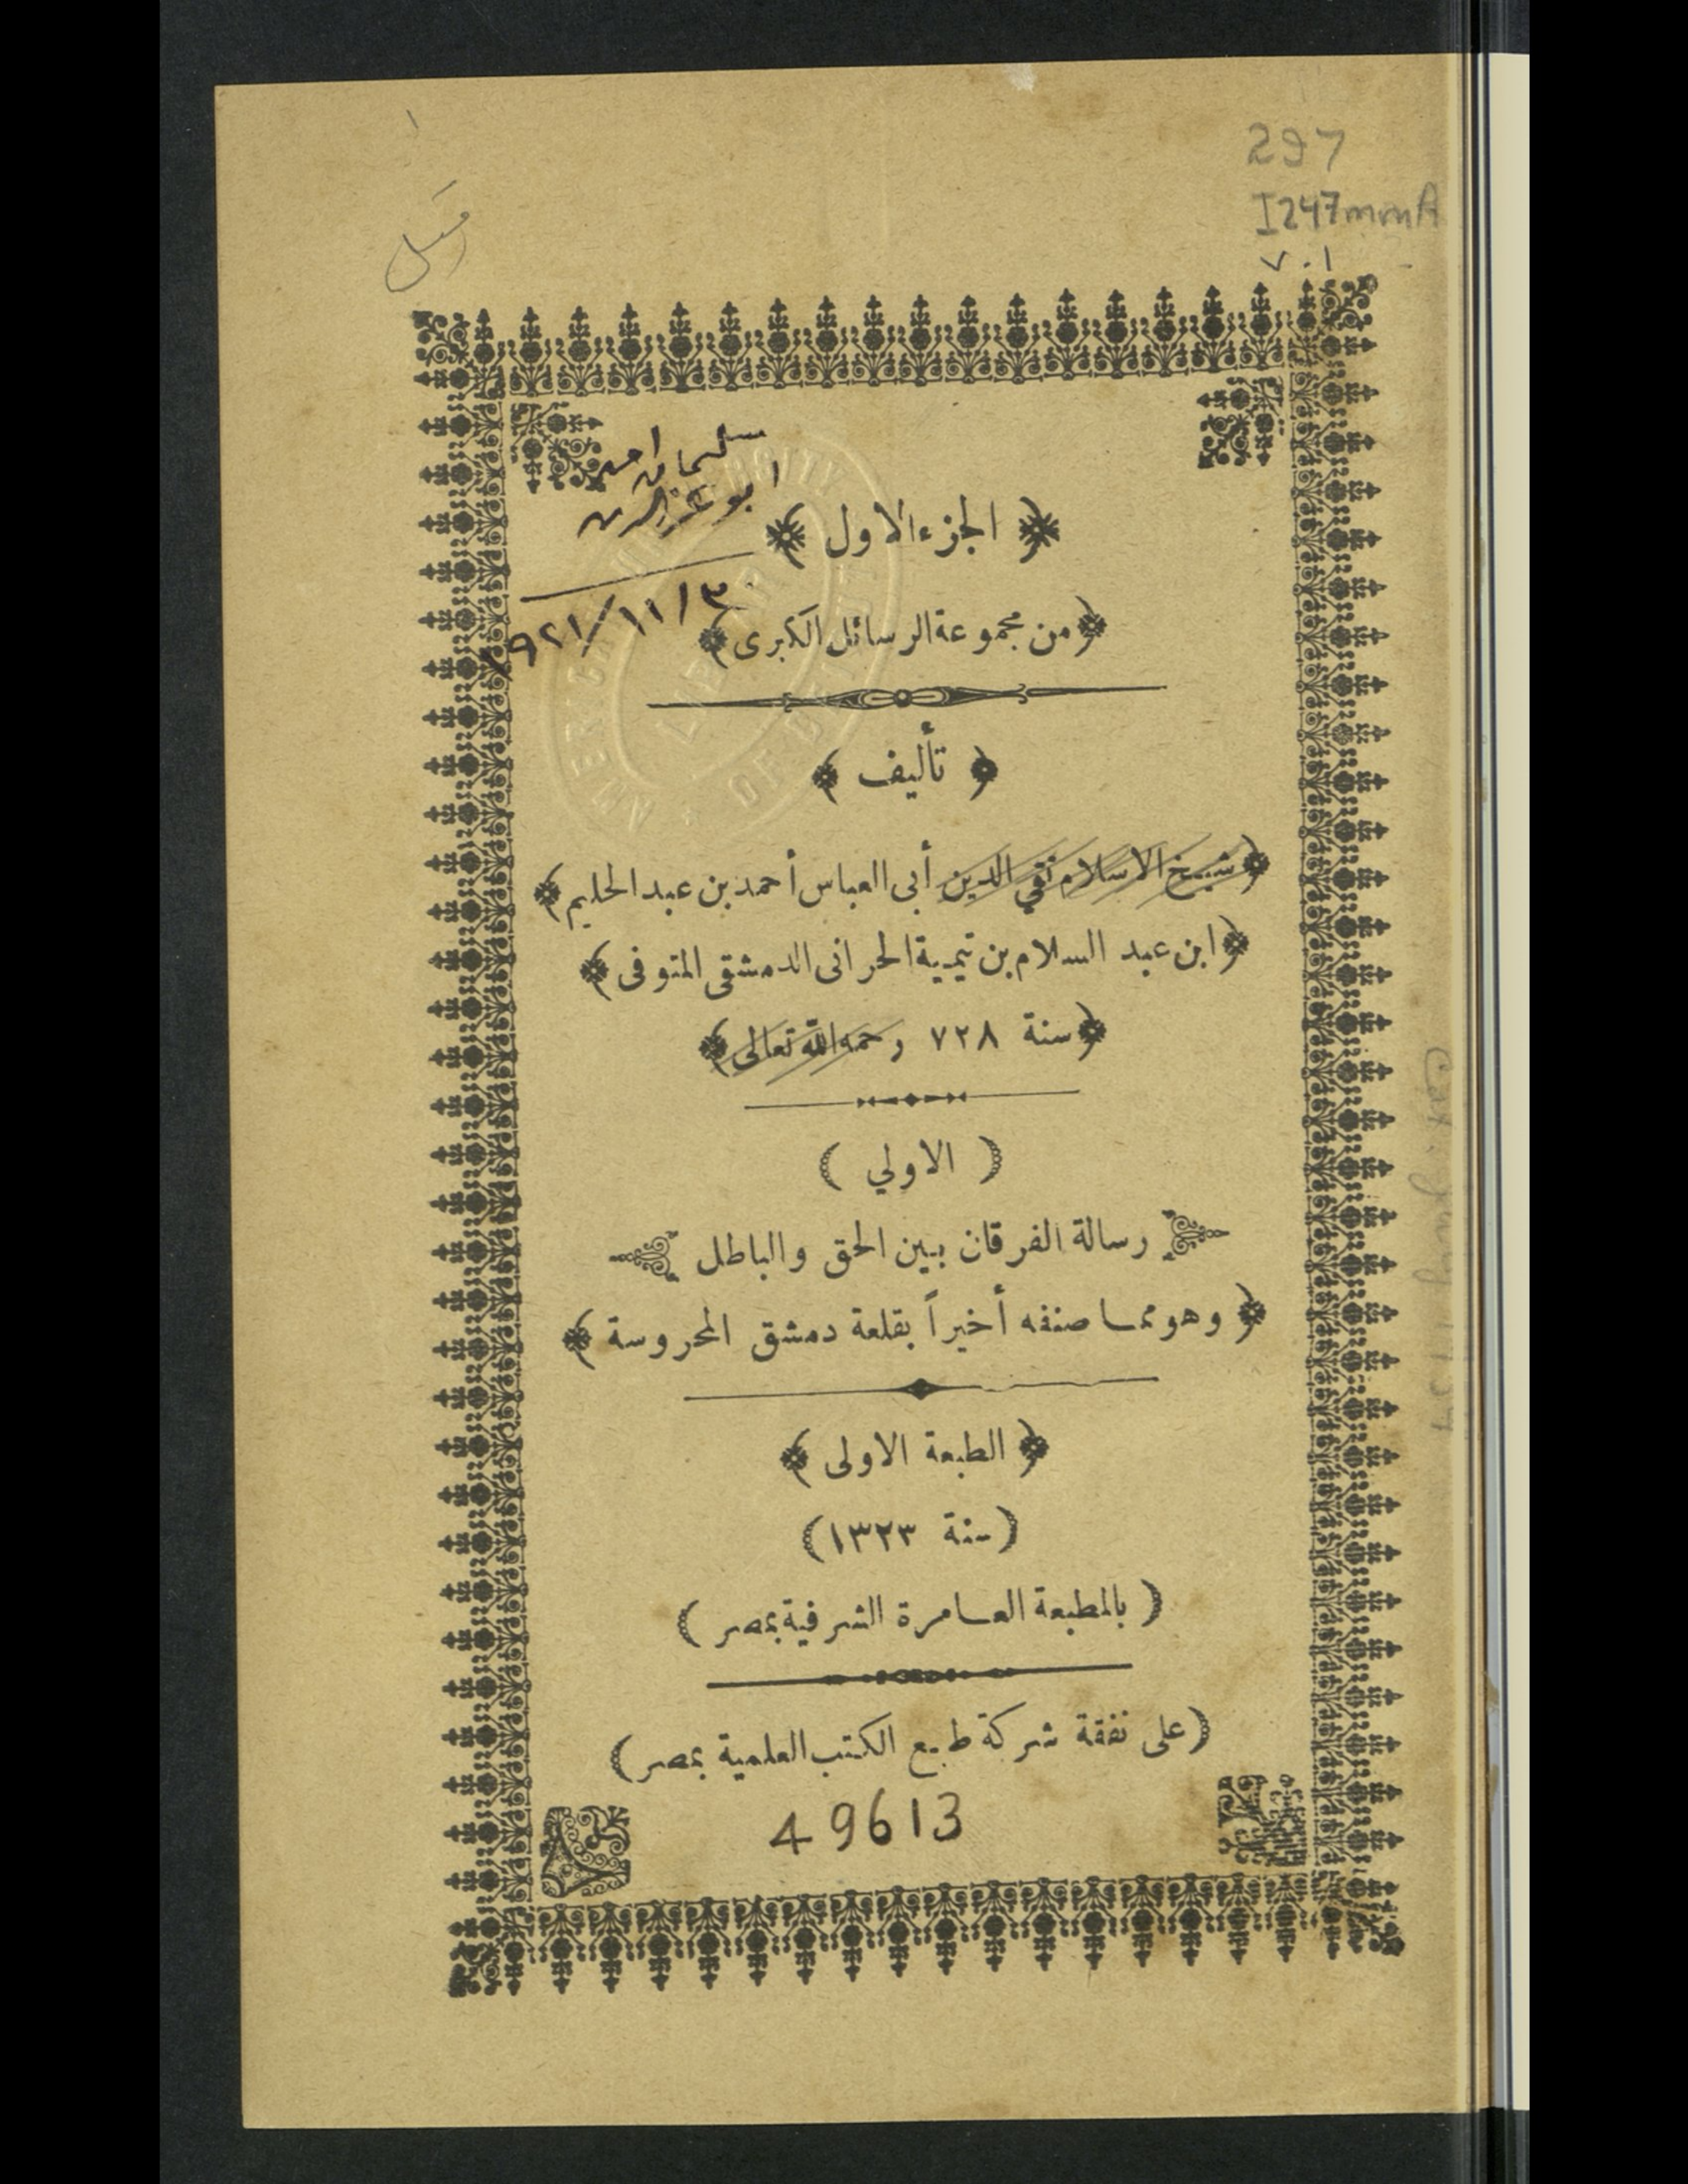 297
I247mmA
v.1
سليمان احمد
ابو عز الدين
٣/١١/٩٢١
AMERICAN UNIVERSITY OF BEIRUT
LIBRARY
﴿ الجزء الاول ﴾
﴿من مجموعة الرسائل الكبرى﴾
﴿ تأليف ﴾
﴿شيخ الاسلام تقي الدين أبى العباس أحمد بن عبد الحليم﴾
﴿ابن عبد السلام بن تيمية الحرانى الدمشقى المتوفى﴾
﴿سنة ٧٢٨ رحمه الله تعالى﴾
( الاولي )
رسالة الفرقان بين الحق والباطل
﴿ وهو مما صنفه أخيراً بقلعة دمشق المحروسة ﴾
﴿ الطبعة الاولى ﴾
(سنة ١٣٢٣)
( بالمطبعة العامرة الشرفية بمصر )
(على نفقة شركة طبع الكتب العلمية بمصر)
49613